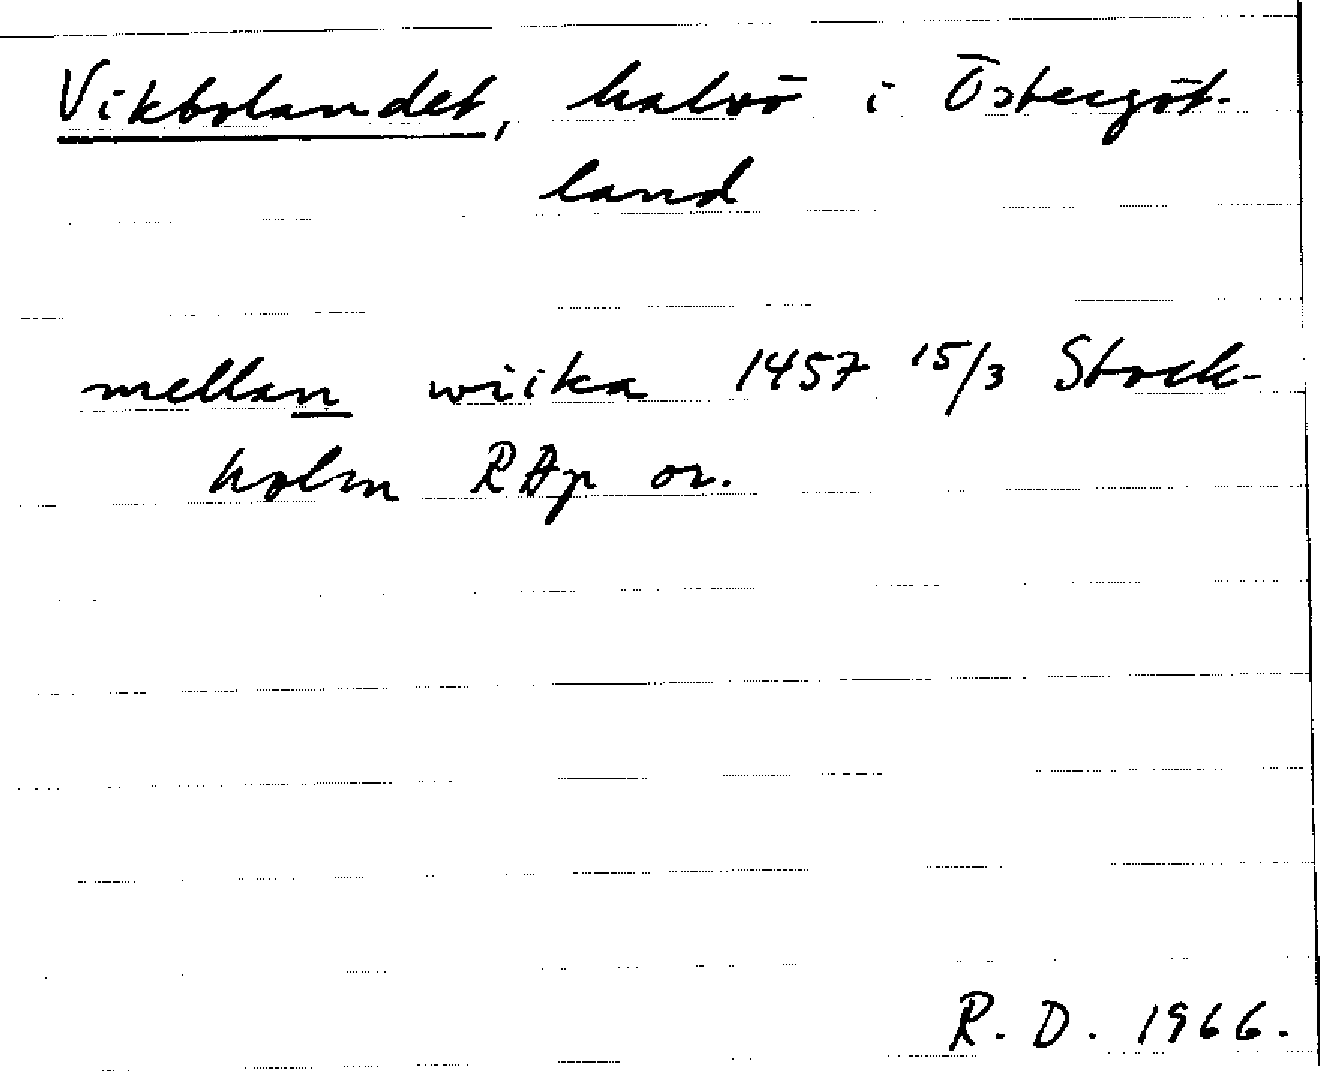 Vikbolandet, halvö i Östergöt-
land
mellan wiika 1457 15/3 Stock-
holm RAp or.
R. D. 1966.